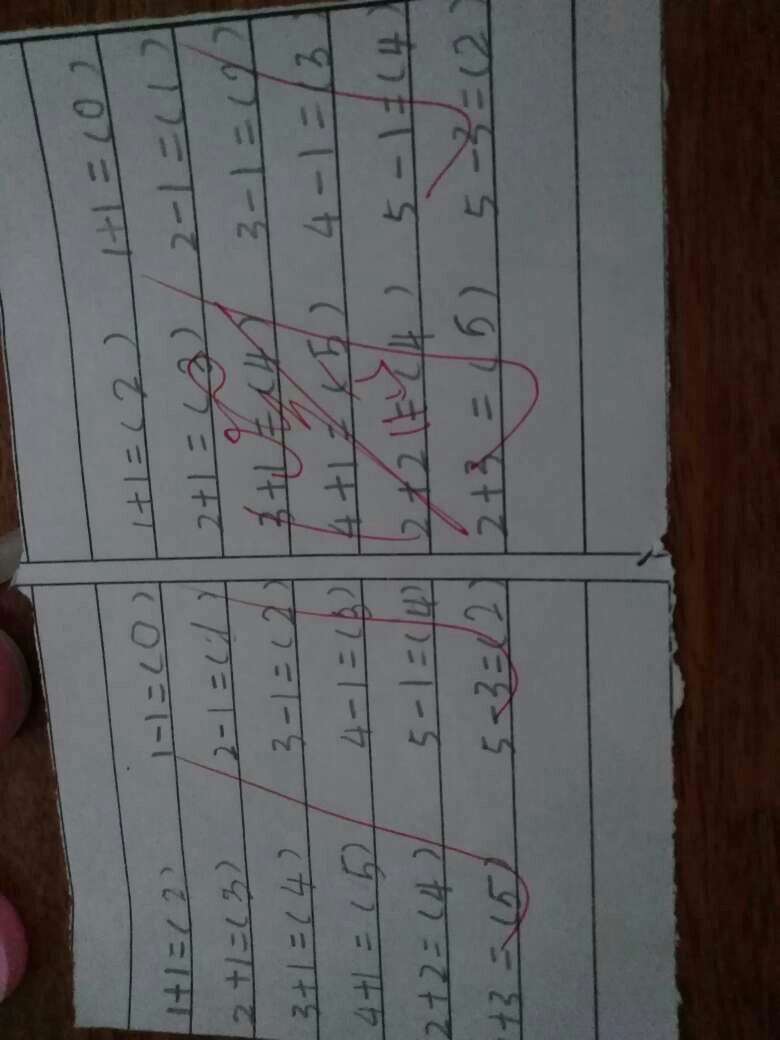 1+1=(2) 1-1=(0)
2+1=(3) 2-1=(1)
3+1=(4) 3-1=(2)
4+1=(5) 4-1=(3)
2+2=(4) 5-1=(4)
+3=(5) 5-3=(2)
1+1=(2) 1+1=(0)
2+1=(3) 2-1=(1)
3+1=(4) 3-1=(2)
4+1=(5) 4-1=(3
2+2=(4) 5-1=(4)
2+3=(5) 5-3=(2)